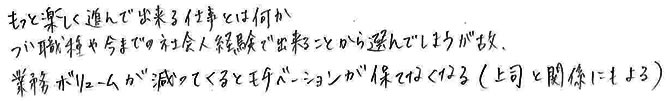 もっと楽しく進んで出来る仕事とは何か
つい職種や今までの社会人経験で出来ることから選んでしまうが故、
業務ボリュームが減ってくるとモチベーションが保てなくなる（上司と関係にもよる）